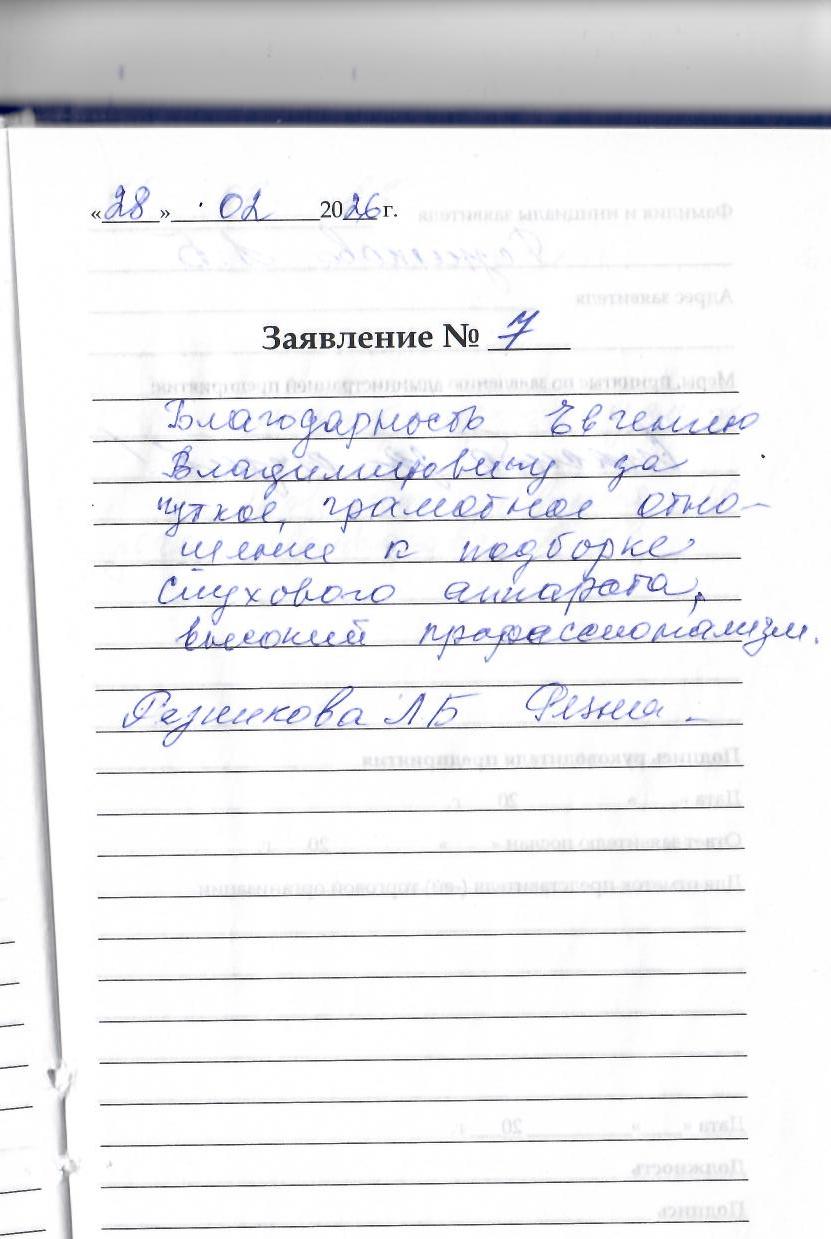 «28» 02 2026 г.
Заявление № 7
Благодарность Евгению
Владимировичу за
чуткое, грамотное отно-
шение к подборке
слухового аппарата,
высокий профессионализм.
Резникова Л Б